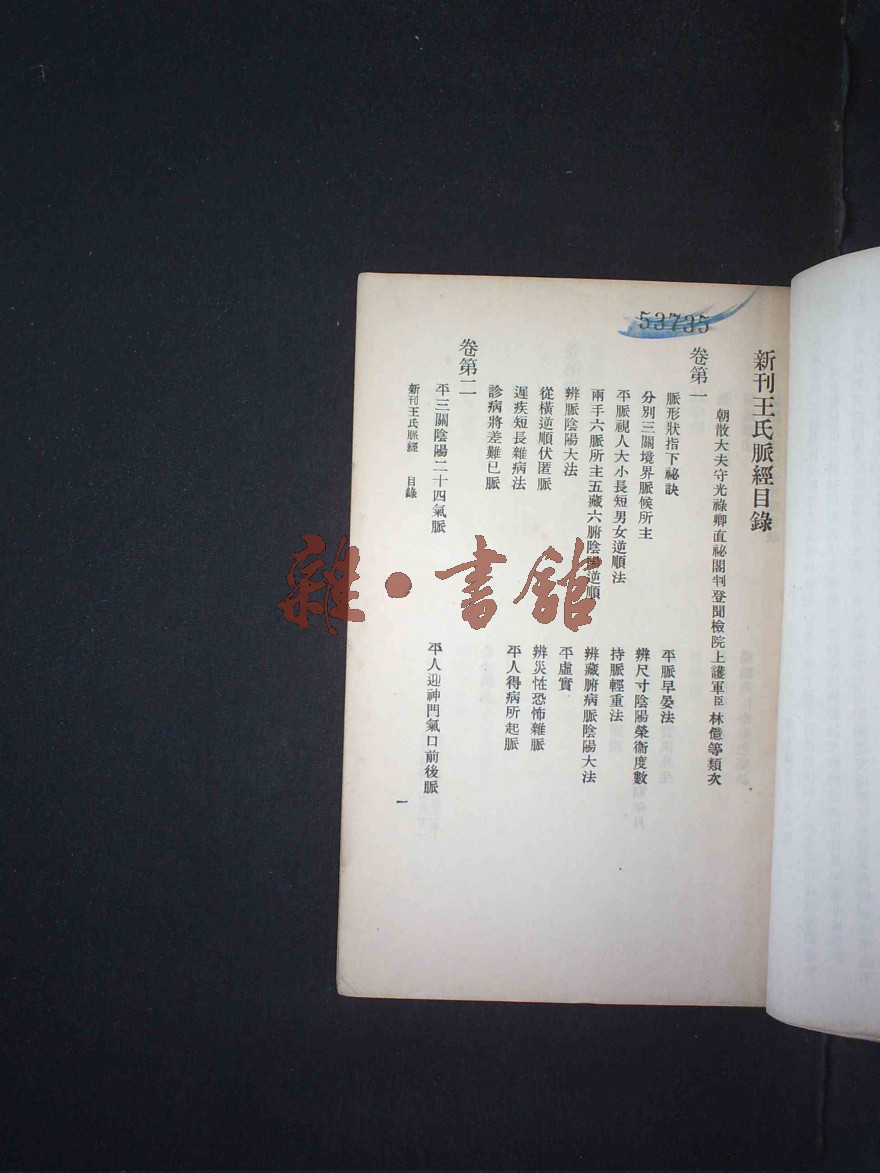 53735
新刊王氏脈經目錄
朝散大夫守光祿卿直祕閣判登聞檢院上護軍臣 林億等類次
卷第一
脈形狀指下祕訣
平脈早晏法
分別三關境界脈候所主
辨尺寸陰陽榮衞度數
平脈視人大小長短男女逆順法
持脈輕重法
兩手六脈所主五藏六腑陰陽逆順
辨藏腑病脈陰陽大法
辨脈陰陽大法
平虛實
從橫逆順伏匿脈
辨災怪恐怖雜脈
遲疾短長雜病法
平人得病所起脈
診病將差難已脈
卷第二
平三關陰陽二十四氣脈
平人迎神門氣口前後脈
新刊王氏脈經 目錄
一
雜·書館